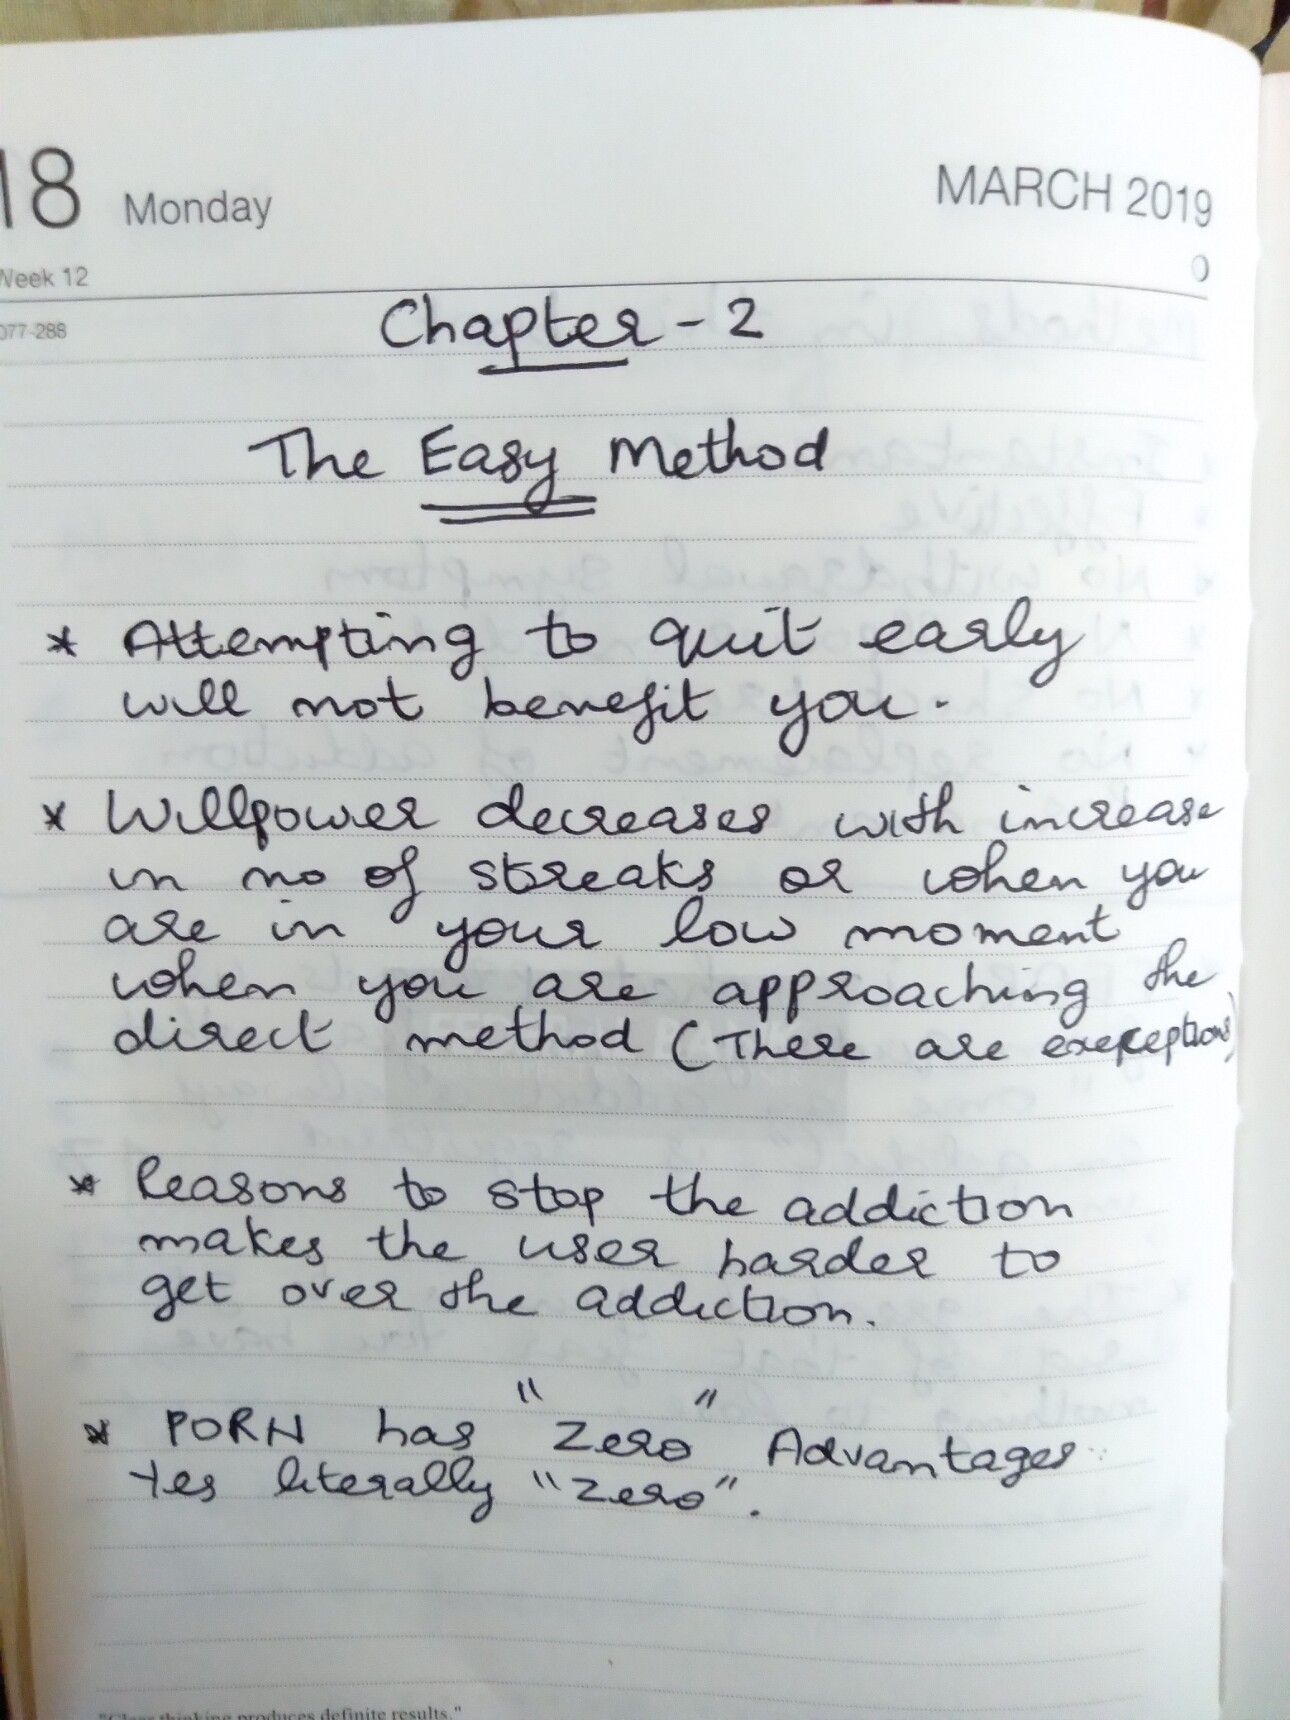 18 Monday
MARCH 2019
Week 12
077-288
Chapter - 2
The Easy Method
* Attempting to quit early
will not benefit you.
* Willpower decreases with increase
in no of streaks or when you
are in your low moment
when you are approaching the
direct method (There are exeptions)
* Reasons to stop the addiction
makes the user harder to
get over the addiction.
* PORN has "Zero" Advantages
Yes literally "Zero".
"Clear thinking produces definite results."